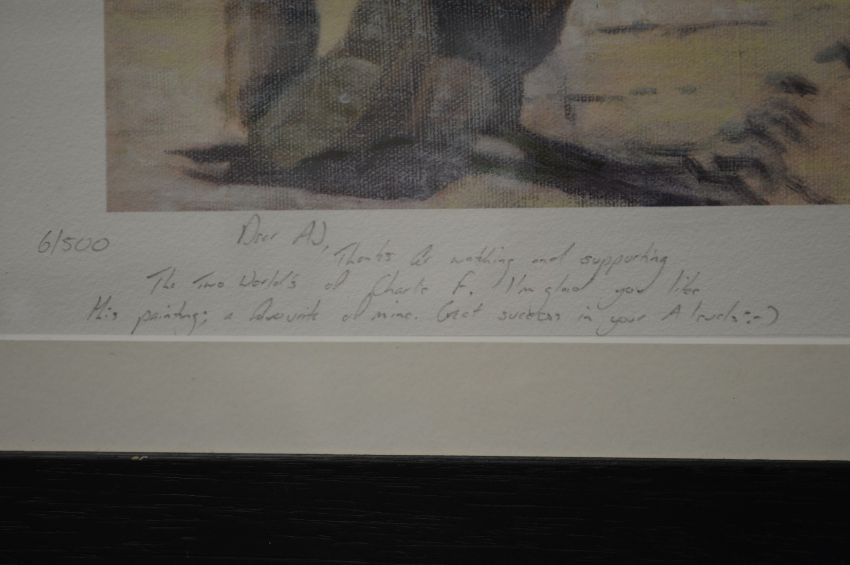 6/500
Dear AJ,
Thanks for watching and supporting
The Two World's of Charlie F. I'm glad you like
this painting; a favourite of mine. Great success in your A levels :-)